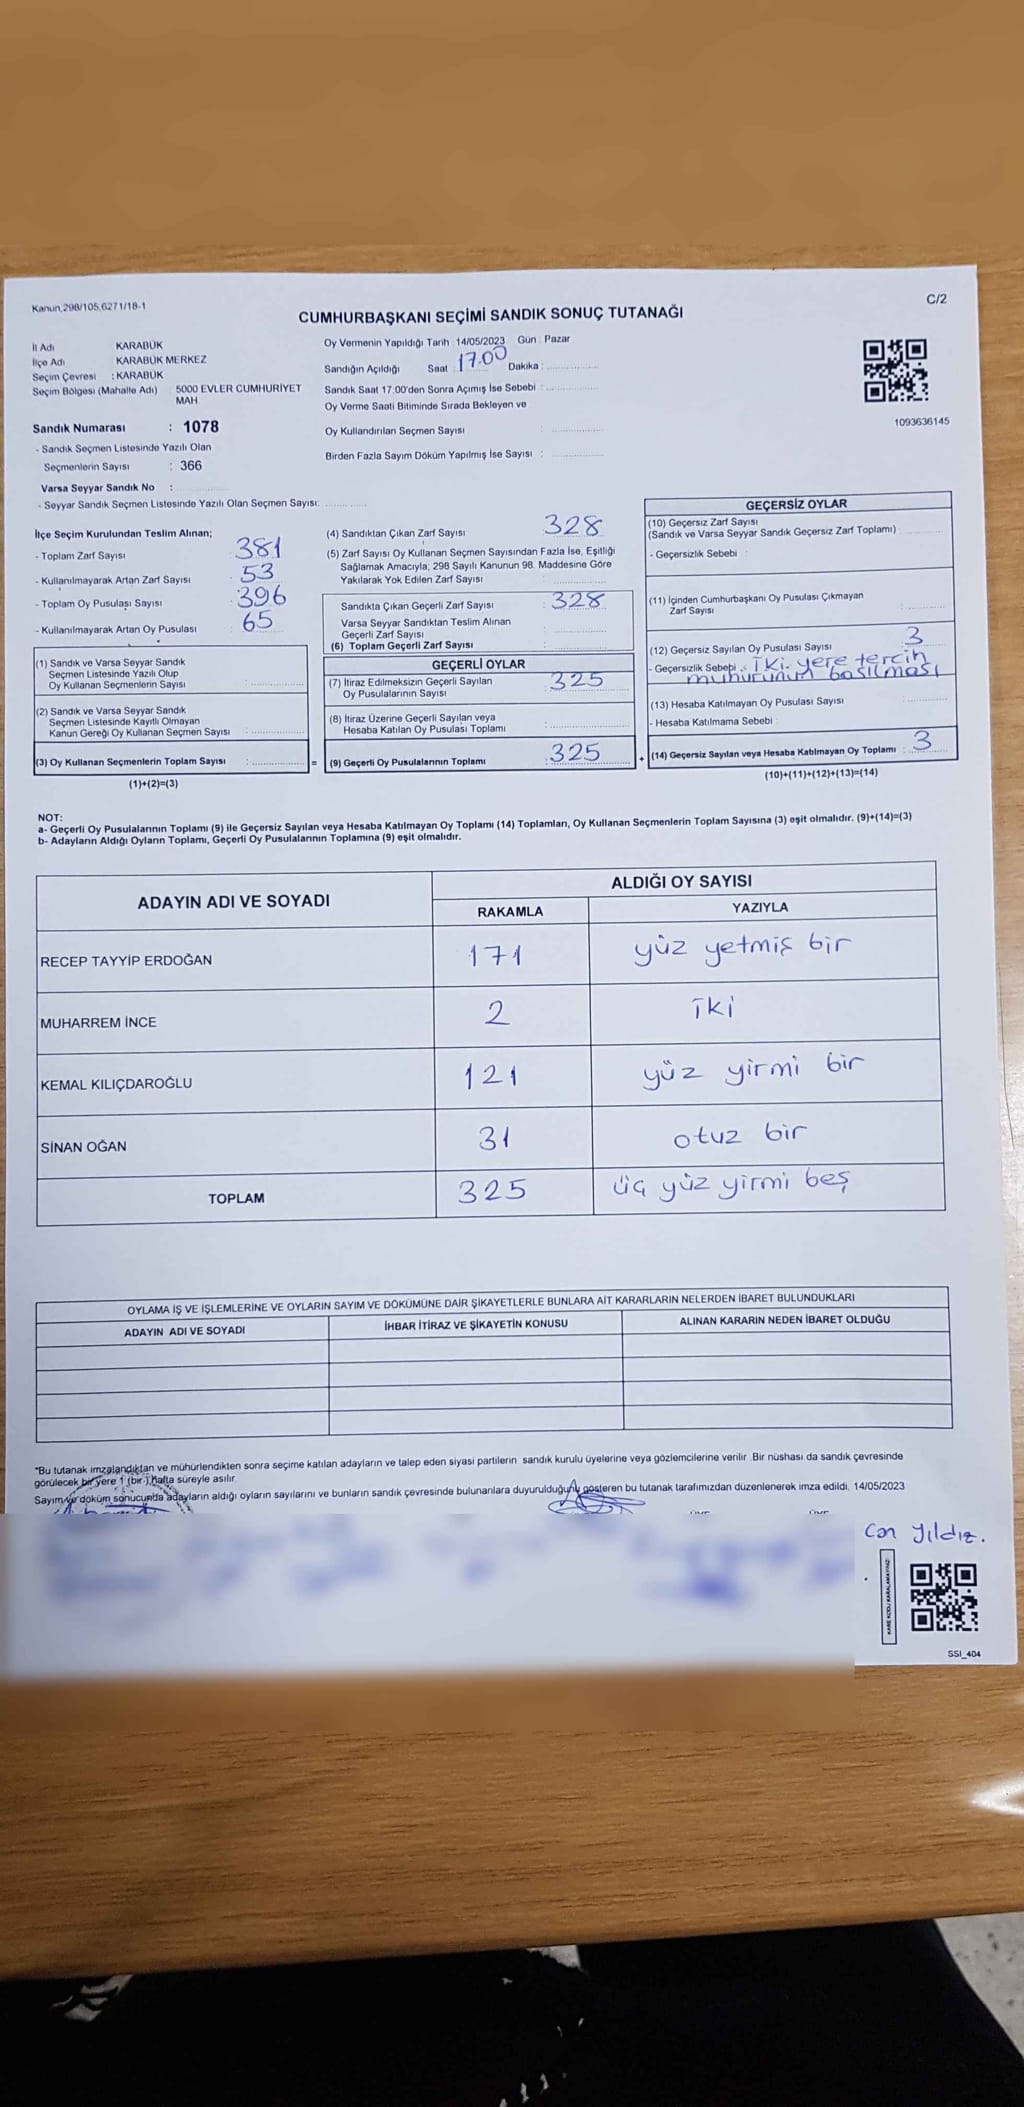 Kanun,298/105,6271/18-1
C/2
CUMHURBAŞKANI SEÇİMİ SANDIK SONUÇ TUTANAĞI
İl Adı KARABÜK
İlçe Adı KARABÜK MERKEZ
Seçim Çevresi : KARABÜK
Seçim Bölgesi (Mahalle Adı) 5000 EVLER CUMHURİYET
MAH.
Sandık Numarası : 1078
- Sandık Seçmen Listesinde Yazılı Olan
Seçmenlerin Sayısı : 366
Varsa Seyyar Sandık No :
- Seyyar Sandık Seçmen Listesinde Yazılı Olan Seçmen Sayısı:
Oy Vermenin Yapıldığı Tarih : 14/05/2023 Gün : Pazar
Sandığın Açıldığı Saat : 17.00 Dakika :
Sandık Saat 17.00'den Sonra Açımış İse Sebebi :
Oy Verme Saati Bitiminde Sırada Bekleyen ve
Oy Kullandırılan Seçmen Sayısı :
Birden Fazla Sayım Döküm Yapılmış İse Sayısı :
1093636145
İlçe Seçim Kurulundan Teslim Alınan;
- Toplam Zarf Sayısı : 381
- Kullanılmayarak Artan Zarf Sayısı : 53
- Toplam Oy Pusulası Sayısı : 396
- Kullanılmayarak Artan Oy Pusulası : 65
(1) Sandık ve Varsa Seyyar Sandık
Seçmen Listesinde Yazılı Olup
Oy Kullanan Seçmenlerin Sayısı :
(2) Sandık ve Varsa Seyyar Sandık
Seçmen Listesinde Kayıtlı Olmayan
Kanun Gereği Oy Kullanan Seçmen Sayısı :
(3) Oy Kullanan Seçmenlerin Toplam Sayısı : =
(1)+(2)=(3)
(4) Sandıktan Çıkan Zarf Sayısı : 328
(5) Zarf Sayısı Oy Kullanan Seçmen Sayısından Fazla İse, Eşitliği
Sağlamak Amacıyla; 298 Sayılı Kanunun 98. Maddesine Göre
Yakılarak Yok Edilen Zarf Sayısı :
Sandıkta Çıkan Geçerli Zarf Sayısı : 328
Varsa Seyyar Sandıktan Teslim Alınan
Geçerli Zarf Sayısı :
(6) Toplam Geçerli Zarf Sayısı :
GEÇERLİ OYLAR
(7) İtiraz Edilmeksizin Geçerli Sayılan
Oy Pusulalarının Sayısı : 325
(8) İtiraz Üzerine Geçerli Sayılan veya
Hesaba Katılan Oy Pusulası Toplamı :
(9) Geçerli Oy Pusulalarının Toplamı : 325 +
GEÇERSİZ OYLAR
(10) Geçersiz Zarf Sayısı
(Sandık ve Varsa Seyyar Sandık Geçersiz Zarf Toplamı) :
- Geçersizlik Sebebi :
(11) İçinden Cumhurbaşkanı Oy Pusulası Çıkmayan
Zarf Sayısı :
(12) Geçersiz Sayılan Oy Pusulası Sayısı : 3
- Geçersizlik Sebebi : İki yere tercih
mühürünün basılması
(13) Hesaba Katılmayan Oy Pusulası Sayısı :
- Hesaba Katılmama Sebebi :
(14) Geçersiz Sayılan veya Hesaba Katılmayan Oy Toplamı : 3
(10)+(11)+(12)+(13)=(14)
NOT:
a- Geçerli Oy Pusulalarının Toplamı (9) ile Geçersiz Sayılan veya Hesaba Katılmayan Oy Toplamı (14) Toplamları, Oy Kullanan Seçmenlerin Toplam Sayısına (3) eşit olmalıdır. (9)+(14)=(3)
b- Adayların Aldığı Oyların Toplamı, Geçerli Oy Pusulalarının Toplamına (9) eşit olmalıdır.
ADAYIN ADI VE SOYADI
ALDIĞI OY SAYISI
RAKAMLA YAZIYLA
RECEP TAYYİP ERDOĞAN 171 yüz yetmiş bir
MUHARREM İNCE 2 iki
KEMAL KILIÇDAROĞLU 121 yüz yirmi bir
SİNAN OĞAN 31 otuz bir
TOPLAM 325 üç yüz yirmi beş
OYLAMA İŞ VE İŞLEMLERİNE VE OYLARIN SAYIM VE DÖKÜMÜNE DAİR ŞİKAYETLERLE BUNLARA AİT KARARLARIN NELERDEN İBARET BULUNDUKLARI
ADAYIN ADI VE SOYADI İHBAR İTİRAZ VE ŞİKAYETİN KONUSU ALINAN KARARIN NEDEN İBARET OLDUĞU
*Bu tutanak imzalandıktan ve mühürlendikten sonra seçime katılan adayların ve talep eden siyasi partilerin sandık kurulu üyelerine veya gözlemcilerine verilir. Bir nüshası da sandık çevresinde
görülecek bir yere 1 (bir ) hafta süreyle asılır.
Sayım ve döküm sonucunda adayların aldığı oyların sayılarını ve bunların sandık çevresinde bulunanlara duyurulduğunu gösteren bu tutanak tarafımızdan düzenlenerek imza edildi. 14/05/2023
Can Yıldız.
KARE KODU KARALAMAYINIZ!
SSI_404